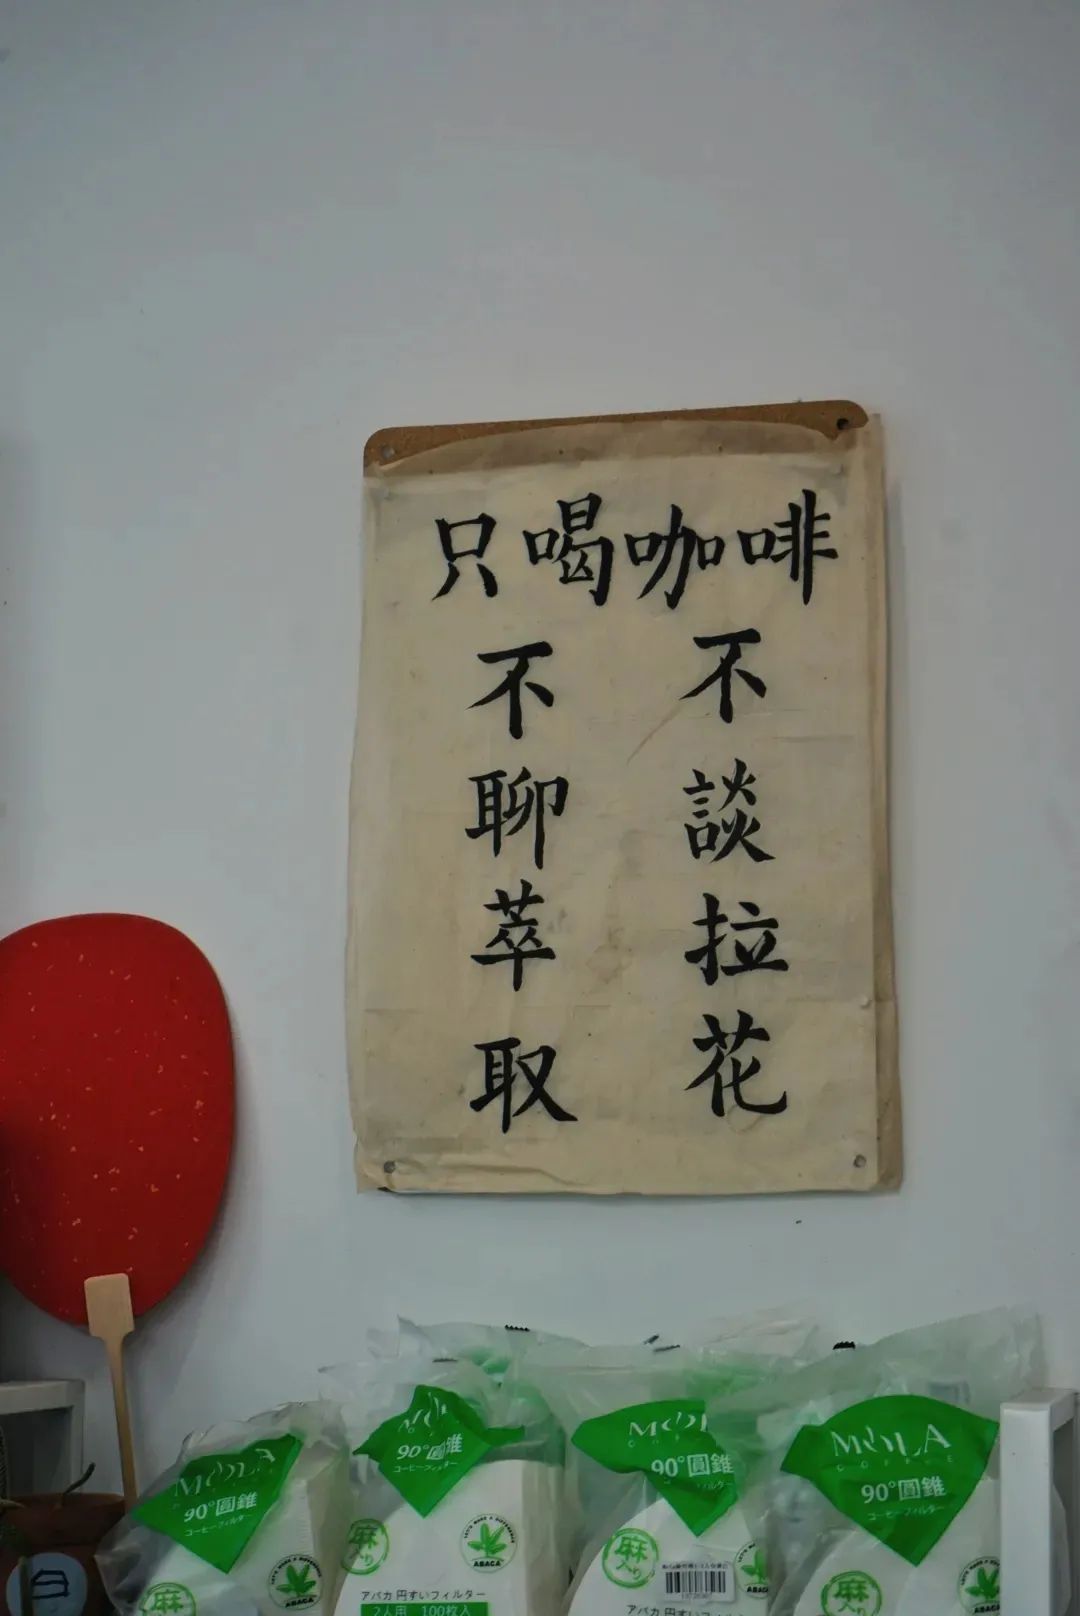 只喝咖啡
不談拉花
不聊萃取
MOLA
90°圓錐
コーヒーフィルター
MOLA
90°圓錐
コーヒーフィルター
麻入り
ABACA
アバカ 円すいフィルター
2人用 100枚入
90°圓錐
麻入り
ABACA
アバカ 円すいフィルター
MOLA
COFFEE
90°圓錐
コーヒーフィルター
麻
ABACA
麻